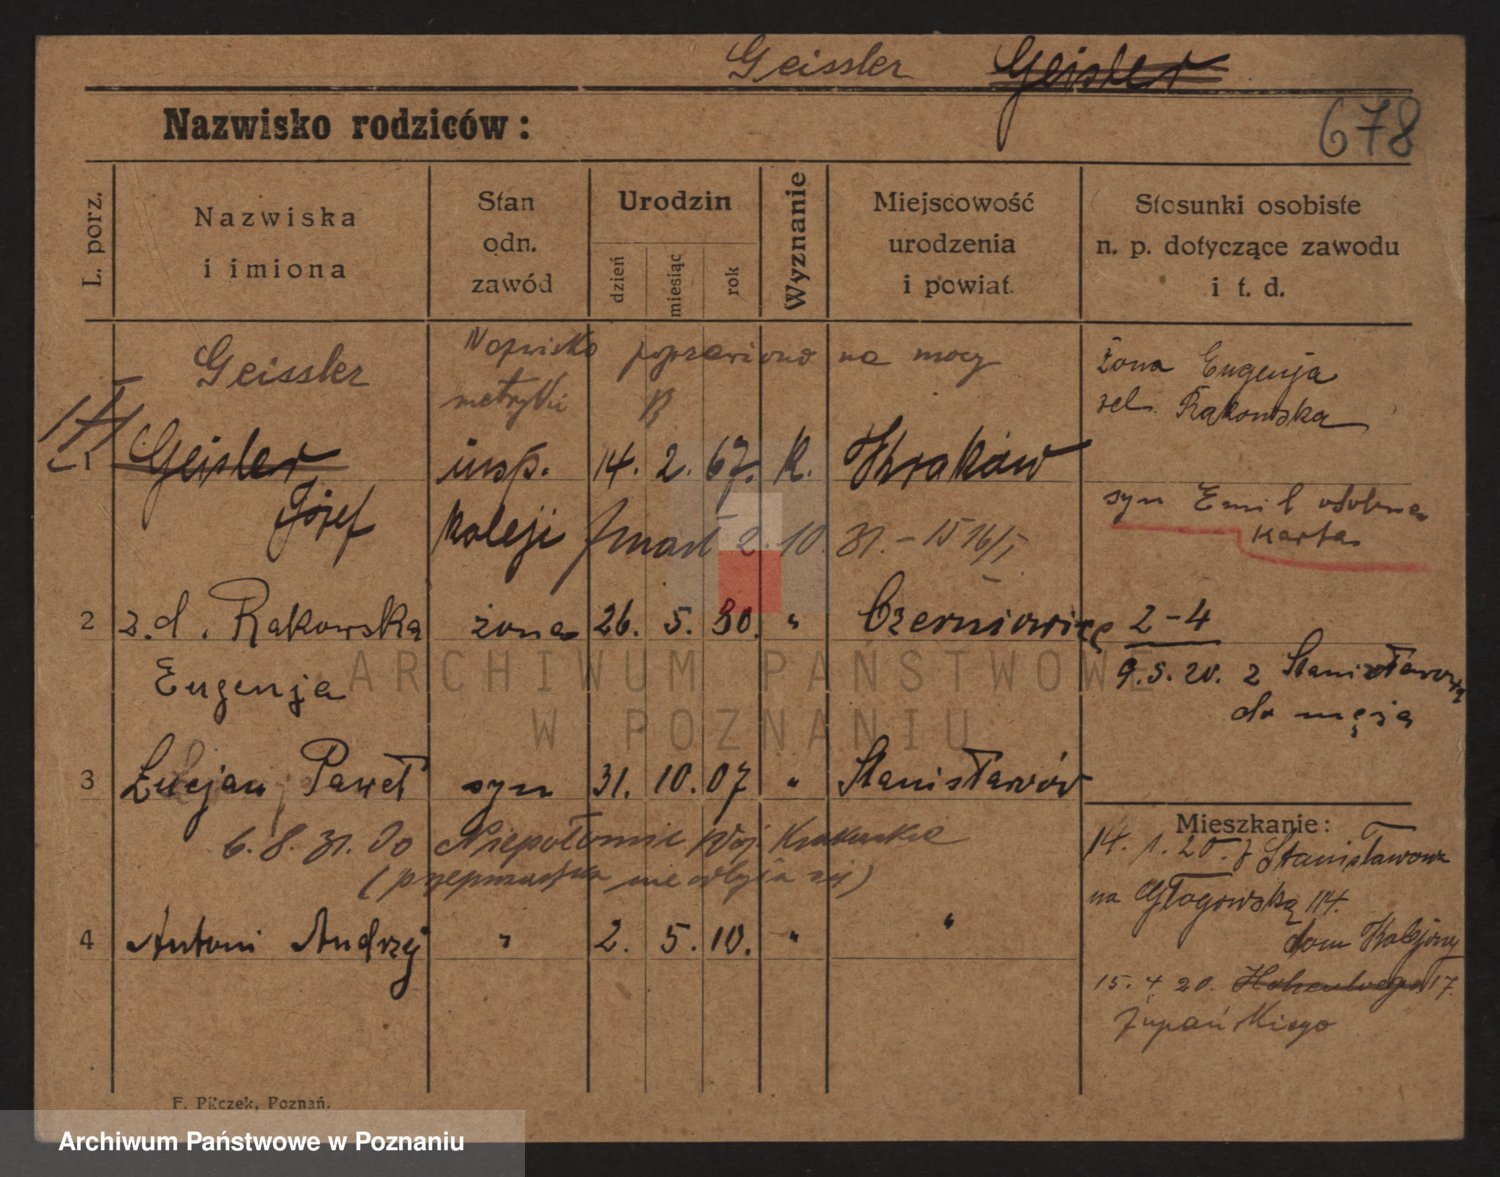 Geissler Geisler
Nazwisko rodziców:
678
L. porz.
Nazwiska
i imiona
Stan
odn.
zawód
Urodzin
dzień
miesiąc
rok
Wyznanie
Miejscowość
urodzenia
i powiat.
Stosunki osobiste
n. p. dotyczące zawodu
i t. d.
Geissler
Nazwisko poprawiono na mocy
metryki
żona Eugenja
Rakowska
1 Geisler insp. 14. 2. 67. R. Kraków
Józef koleji zmarł 2. 10. 31.
syn Emil osobna
karta
2 z. d. Rakowska żona 26. 5. 80. " Czerniowice
Eugenja
2-4
9.5.20. z Stanisławowa
do męża
3 Lucjan Paweł syn 31. 10. 07 " Stanisławów
6.8.31. do Niepołomic woj. Krakowskie
(przeprowadzka nie odbyła się)
4 Antoni Andrzej " 2. 5. 10. " "
Mieszkanie:
14. 1. 20. z Stanisławowa
na Głogowską 114.
dom Kolejowy
15. 4. 20. 17.
Żupańskiego
F. Pilczek, Poznań.
ARCHIWUM PAŃSTWOWE
W POZNANIU
Archiwum Państwowe w Poznaniu